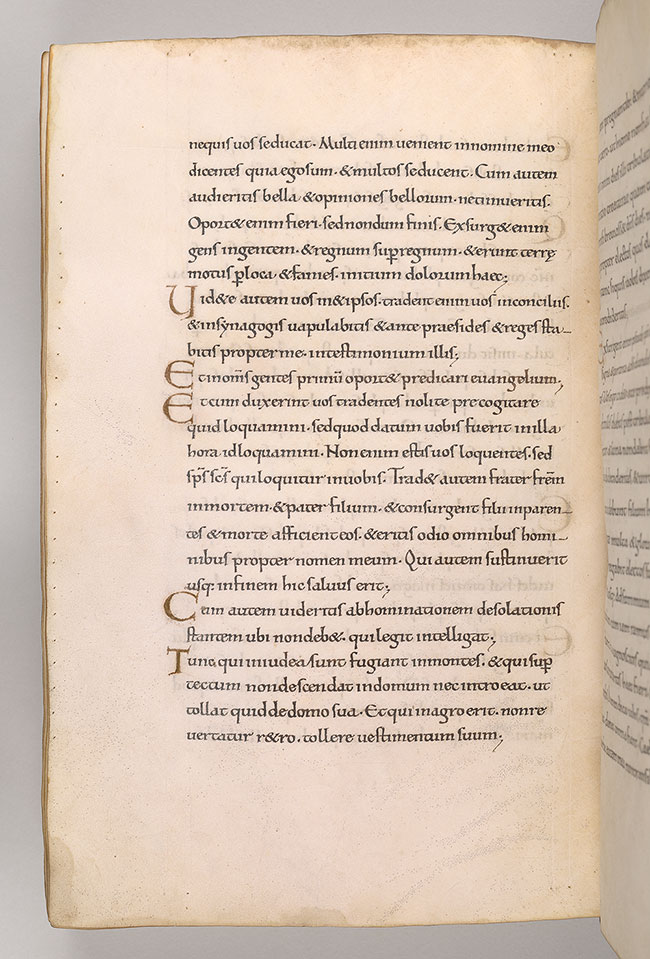 nequis uos seducat. Multi enim uenient in nomine meo
dicentes quia ego sum. & multos seducent. Cum autem
audieritis bella & opiniones bellorum. ne timueritis.
Oport& enim fieri. sed nondum finis. Exsurg& enim
gens in gentem. & regnum sup regnum. & erunt terrę
motus p loca. & fames. initium dolorum haec;
Uid&e autem uos m&ipsos. tradent enim uos in conciliis.
& in synagogis uapulabitis & ante praesides & reges sta-
bitis propter me. in testimonium illis;
Et in om̄s gentes primū oport& predicari euangelium;
Et cum duxerint uos tradentes nolite precogitare
quid loquamini. sed quod datum uobis fuerit in illa
hora id loquamini. Non enim estis uos loquentes. sed
sp̄s sc̄s qui loquitur in uobis. Trad& autem frater fr̄em
in mortem. & pater filium. & consurgent filii in paren-
tes & morte afficient eos. & eritis odio omnibus homi-
nibus propter nomen meum. Qui autem sustinuerit
usq: in finem hic saluus erit;
Cum autem uideritis abhominationem desolationis
stantem ubi non deb&. qui legit intelligat;
Tunc qui in iudea sunt fugiant in montes. & qui sup
tectum non descendat in domum nec introeat. ut
tollat quid de domo sua. Et qui in agro erit. non re
uertatur r&ro. tollere uestimentum suum;